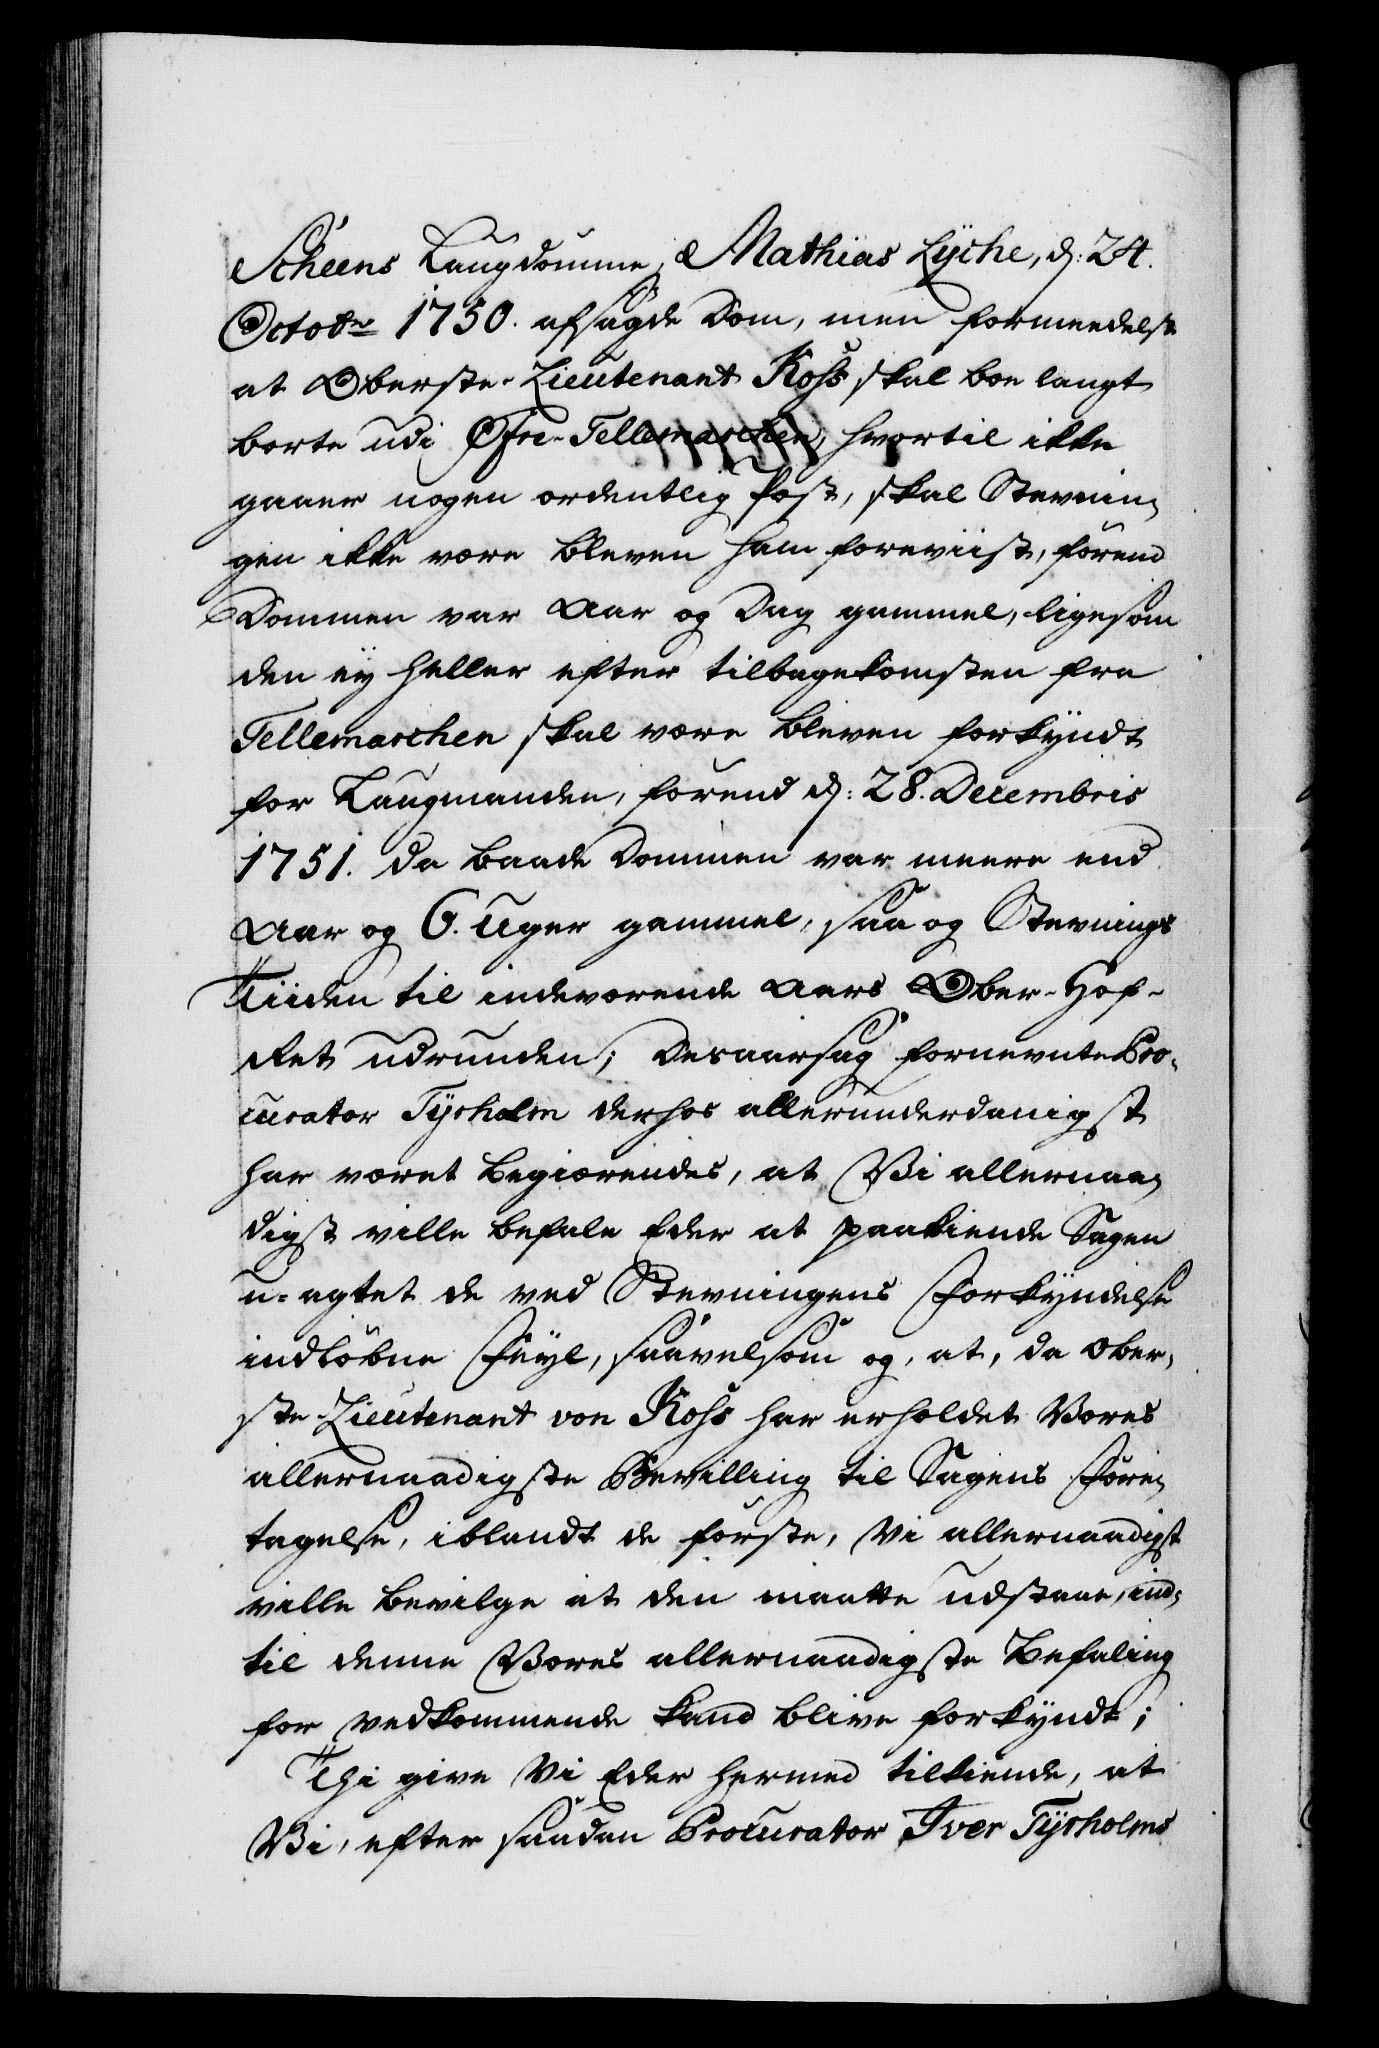 Scheens Laugdømme, Mathias Lÿche, d: 24.
Octobr 1750. afsagde Dom, men formeedelst
at Oberste-Lieutenant Koss skal boe langt
borte udi Øfre-Tellemarchen, hvortil ikke
gaaer nogen ordentlig Post, skal Stevnin-
gen ikke være bleven ham foreviist, førend
Dommen var Aar og Dag gammel, ligesom
den eÿ heller efter tilbagekomsten fra
Tellemarchen skal være bleven forkÿndt
for Laugmanden, førend d: 28. Decembris
1751. da baade Dommen var meere end
Aar og 6. Uger gammel, saa og Stevnings
Tiiden til indeværende Aars Ober-Hof-
Ret udrunden; Desaarsag fornevnte Pro-
curator Tÿrholm derhos allerunderdanigst
har været begiærendes, at Vi allernaa-
digst ville befale Eder at paakiende Sagen
u-agtet de ved Stevningens Forkÿndelse
indløbne Feÿl, saavelsom og, at, da Ober-
ste-Lieutenant von Koss har erholdet Vores
allernaadigste Bevilling til Sagens Fore-
tagelse, iblandt de første, Vi allernaadigst
ville bevilge at den maatte udstaae, ind-
til denne Vores allernaadigste Befaling
for vedkommende kand blive forkÿndt;
Thi give Vi Eder hermed tilkiende, at
Vi, efter saadan Procurator Iver Tÿrholms